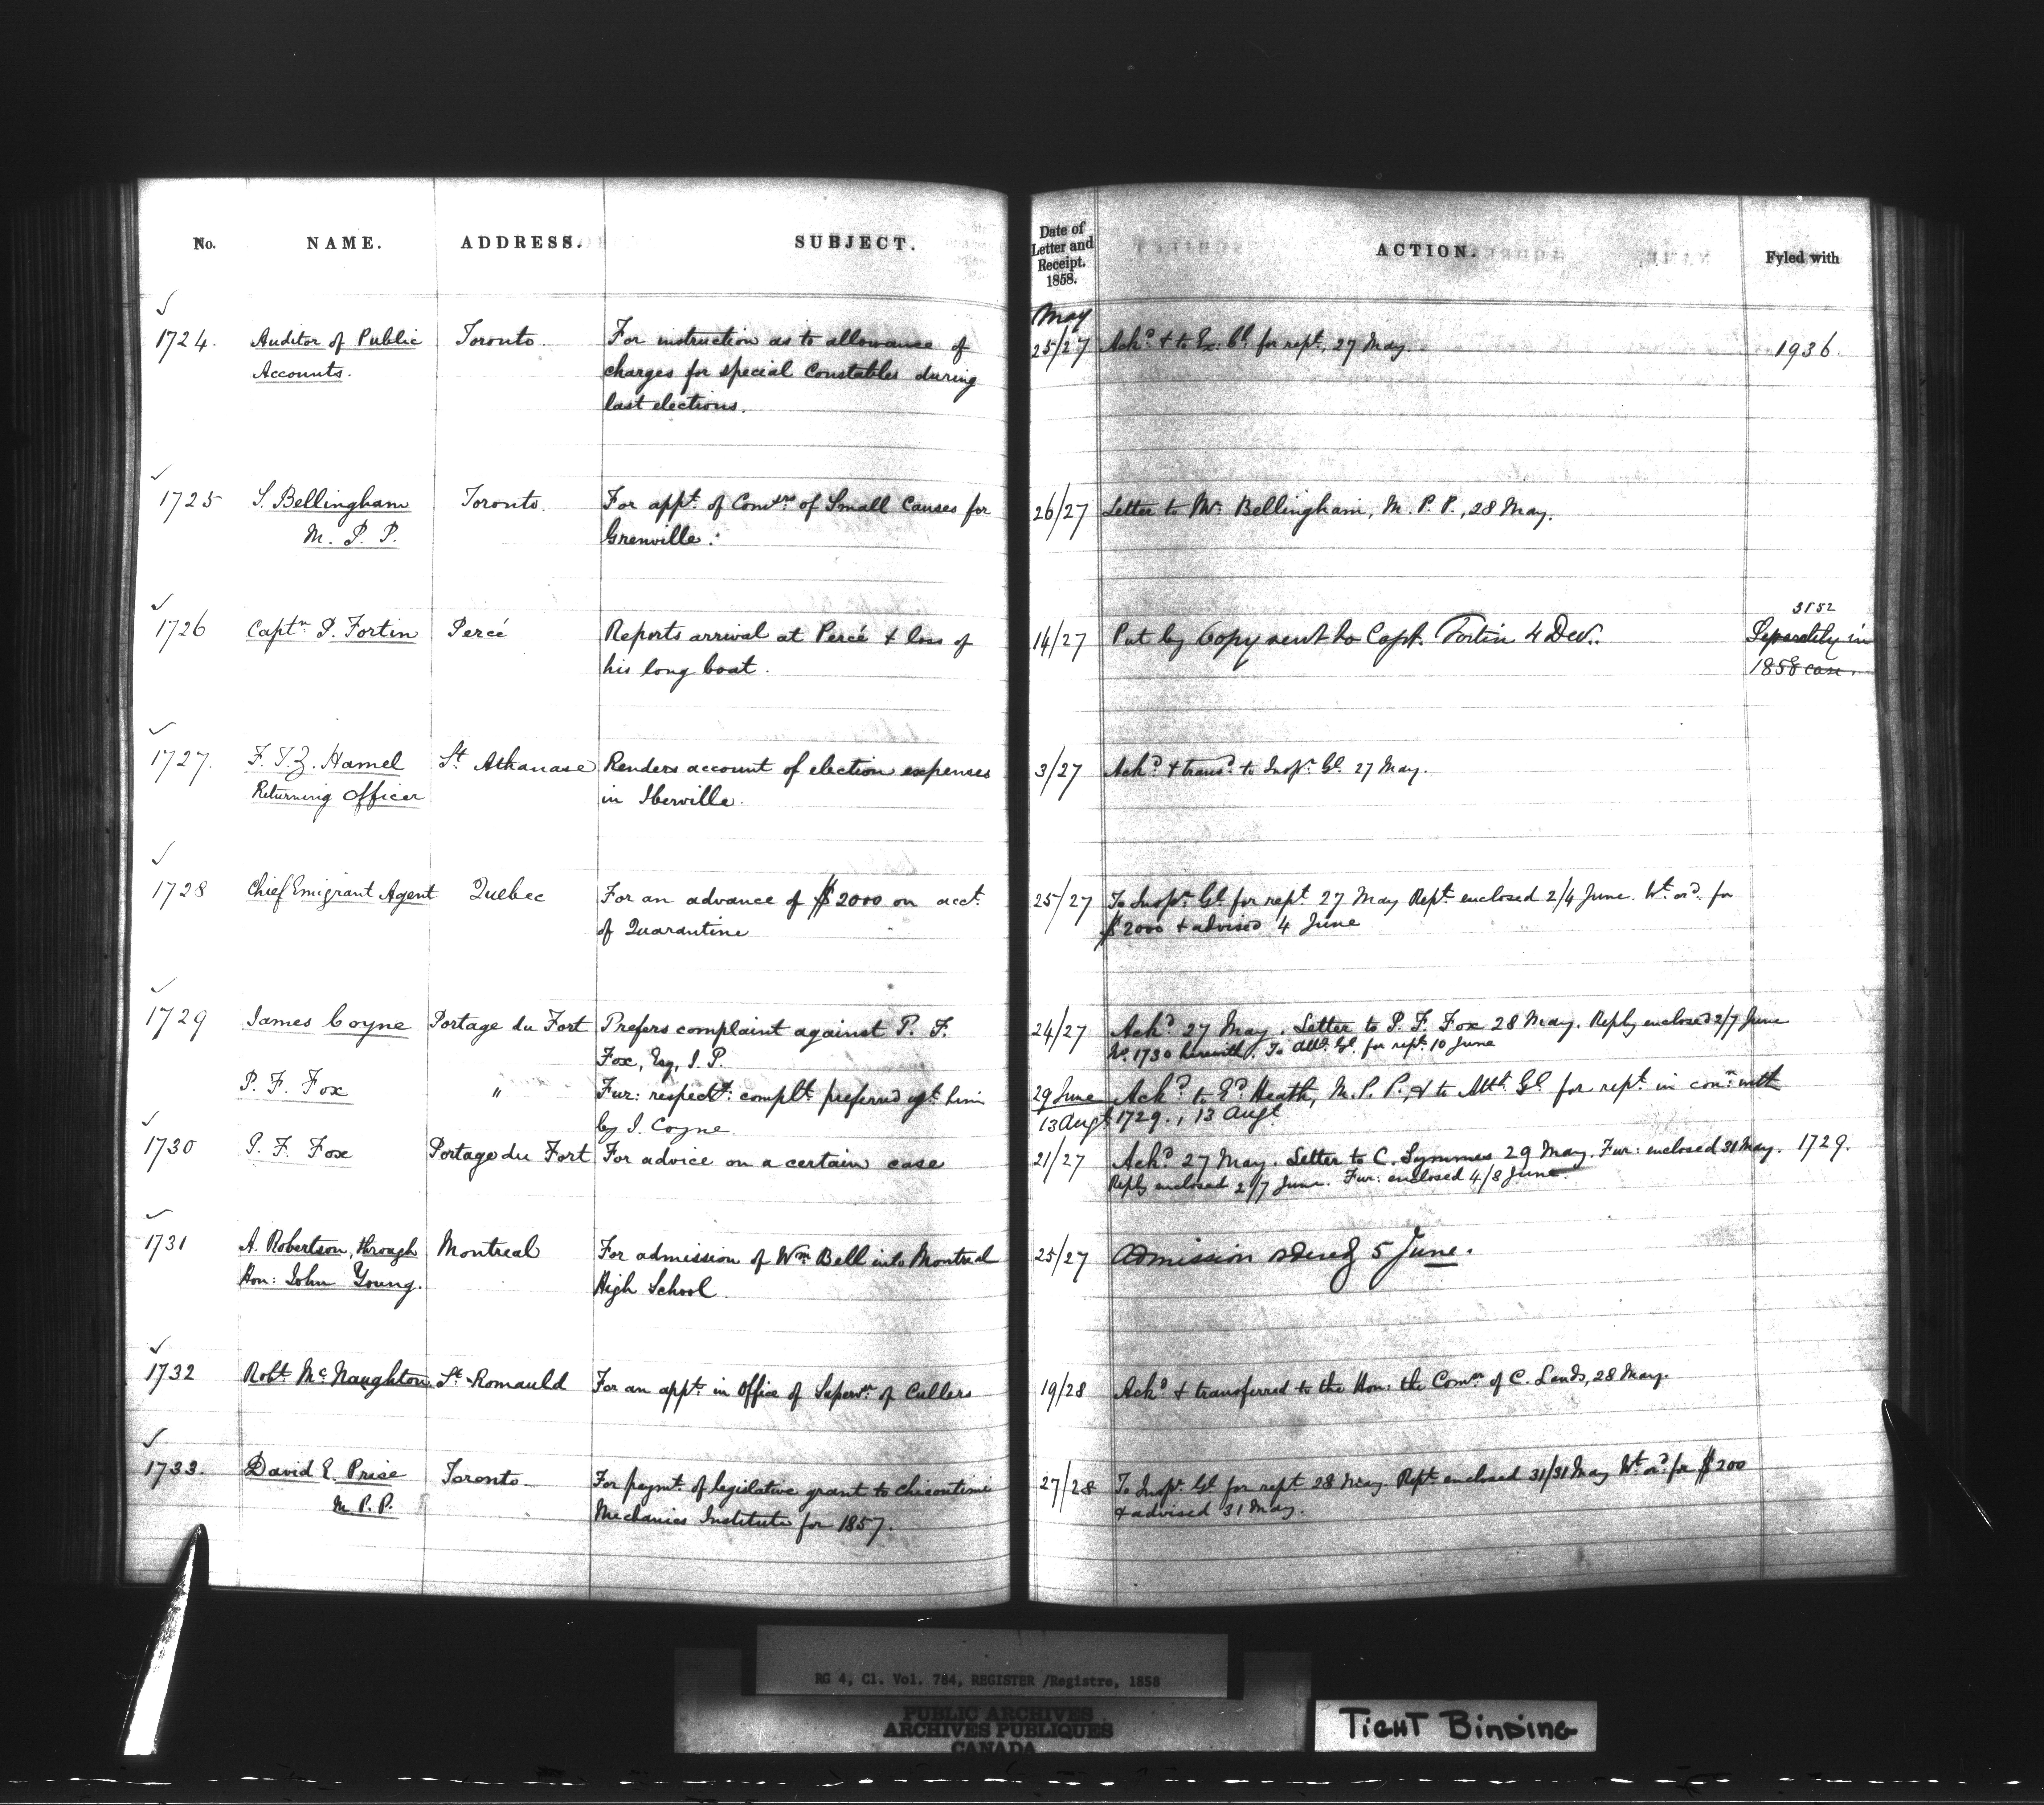 No. NAME. ADDRESS. SUBJECT. Date of Letter and Receipt. 1858. ACTION. Fyled with
May
1724. Auditor of Public Toronto. For instruction as to allowance of 25/27 Ackd & to Ex: Cl for rept, 27 May. 1936.
Accounts. charges for special Constables during
last elections.
1725 S. Bellingham Toronto. For appt. of Comrs. of Small Causes for 26/27 Letter to Mr Bellingham, M. P. P., 28 May.
M. P. P. Grenville.
3152
1726 Captn P. Fortin Percé Reports arrival at Percé & loss of 14/27 Put by Copy sent to Capt. Fortin 4 Dec. Separately in
his long boat. 1858 case.
1727. F. T. Z. Hamel St Athanase Renders account of election expenses 3/27 Ackd & transd to Inspr Gl 27 May.
Returning Officer in Iberville.
1728 Chief Emigrant Agent Quebec For an advance of $2000 on acct. 25/27 To Inspr Gl for rept 27 May Rept enclosed 2/4 June. Wt ord for
of Quarantine $2000 & advised 4 June
1729 James Coyne Portage du Fort Prefers complaint against P. F. 24/27 Ackd 27 May. Letter to P. F. Fox 28 May. Reply enclosed 2/7 June
Fox, Esq, J. P. No. 1730 herewith. To Atty Gl for rept 10 June
P. F. Fox " Fur: respectt: complt. preferred agt. him 29 June Ackd to Ed Heath, M. P. P. & to Att Gl for rept in conn with
by J. Coyne. 13 Augt 1729., 13 Augt
1730 P. F. Fox Portage du Fort For advice on a certain case 21/27 Ackd 27 May. Letter to C. Symmes 29 May. Fur: enclosed 31 May. 1729.
Reply enclosed 2/7 June. Fur: enclosed 4/8 June.
1731 A. Robertson, through Montreal For admission of Wm Bell into Montreal 25/27 Admission ordered 5 June.
Hon: John Young. High School
1732 Robt McNaughton St Romauld For an appt in Office of Supervr of Cullers 19/28 Ackd & transferred to the Hon: the Comr of C. Lands, 28 May.
1733. David E. Price Toronto For paymt. of legislative grant to Chicoutimi 27/28 To Inspr Gl for rept 28 May. Rept enclosed 31/31 May Wt ord for $200
M. P. P. Mechanics Institute for 1857. & advised 31 May.
RG 4, Cl. Vol. 784, REGISTER /Registre, 1858
PUBLIC ARCHIVES
ARCHIVES PUBLIQUES
CANADA
TIGHT BINDING